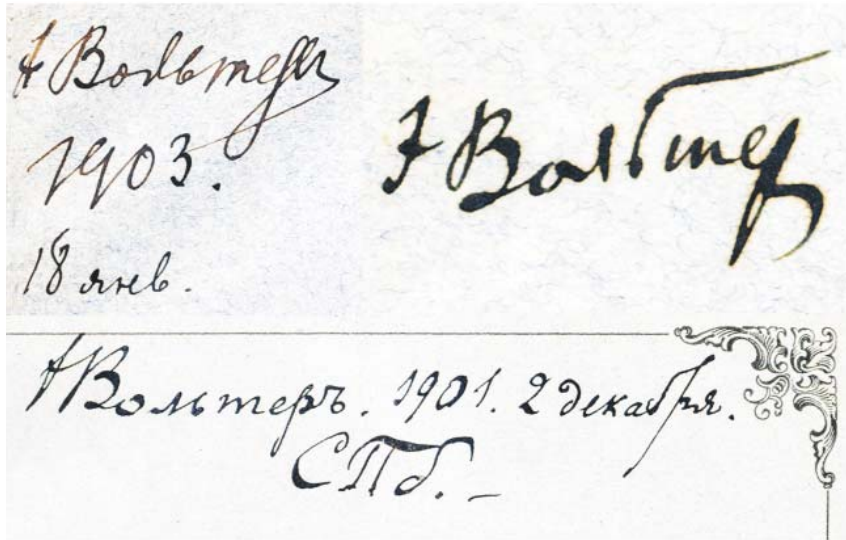 А Вольтеръ
1903.
18 янв.
А Вольтер
А Вольтеръ. 1901. 2 декабря.
СПб. –